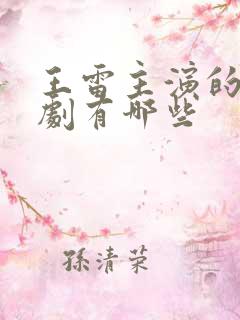 王雷主演的
劇有哪些
孫清荣